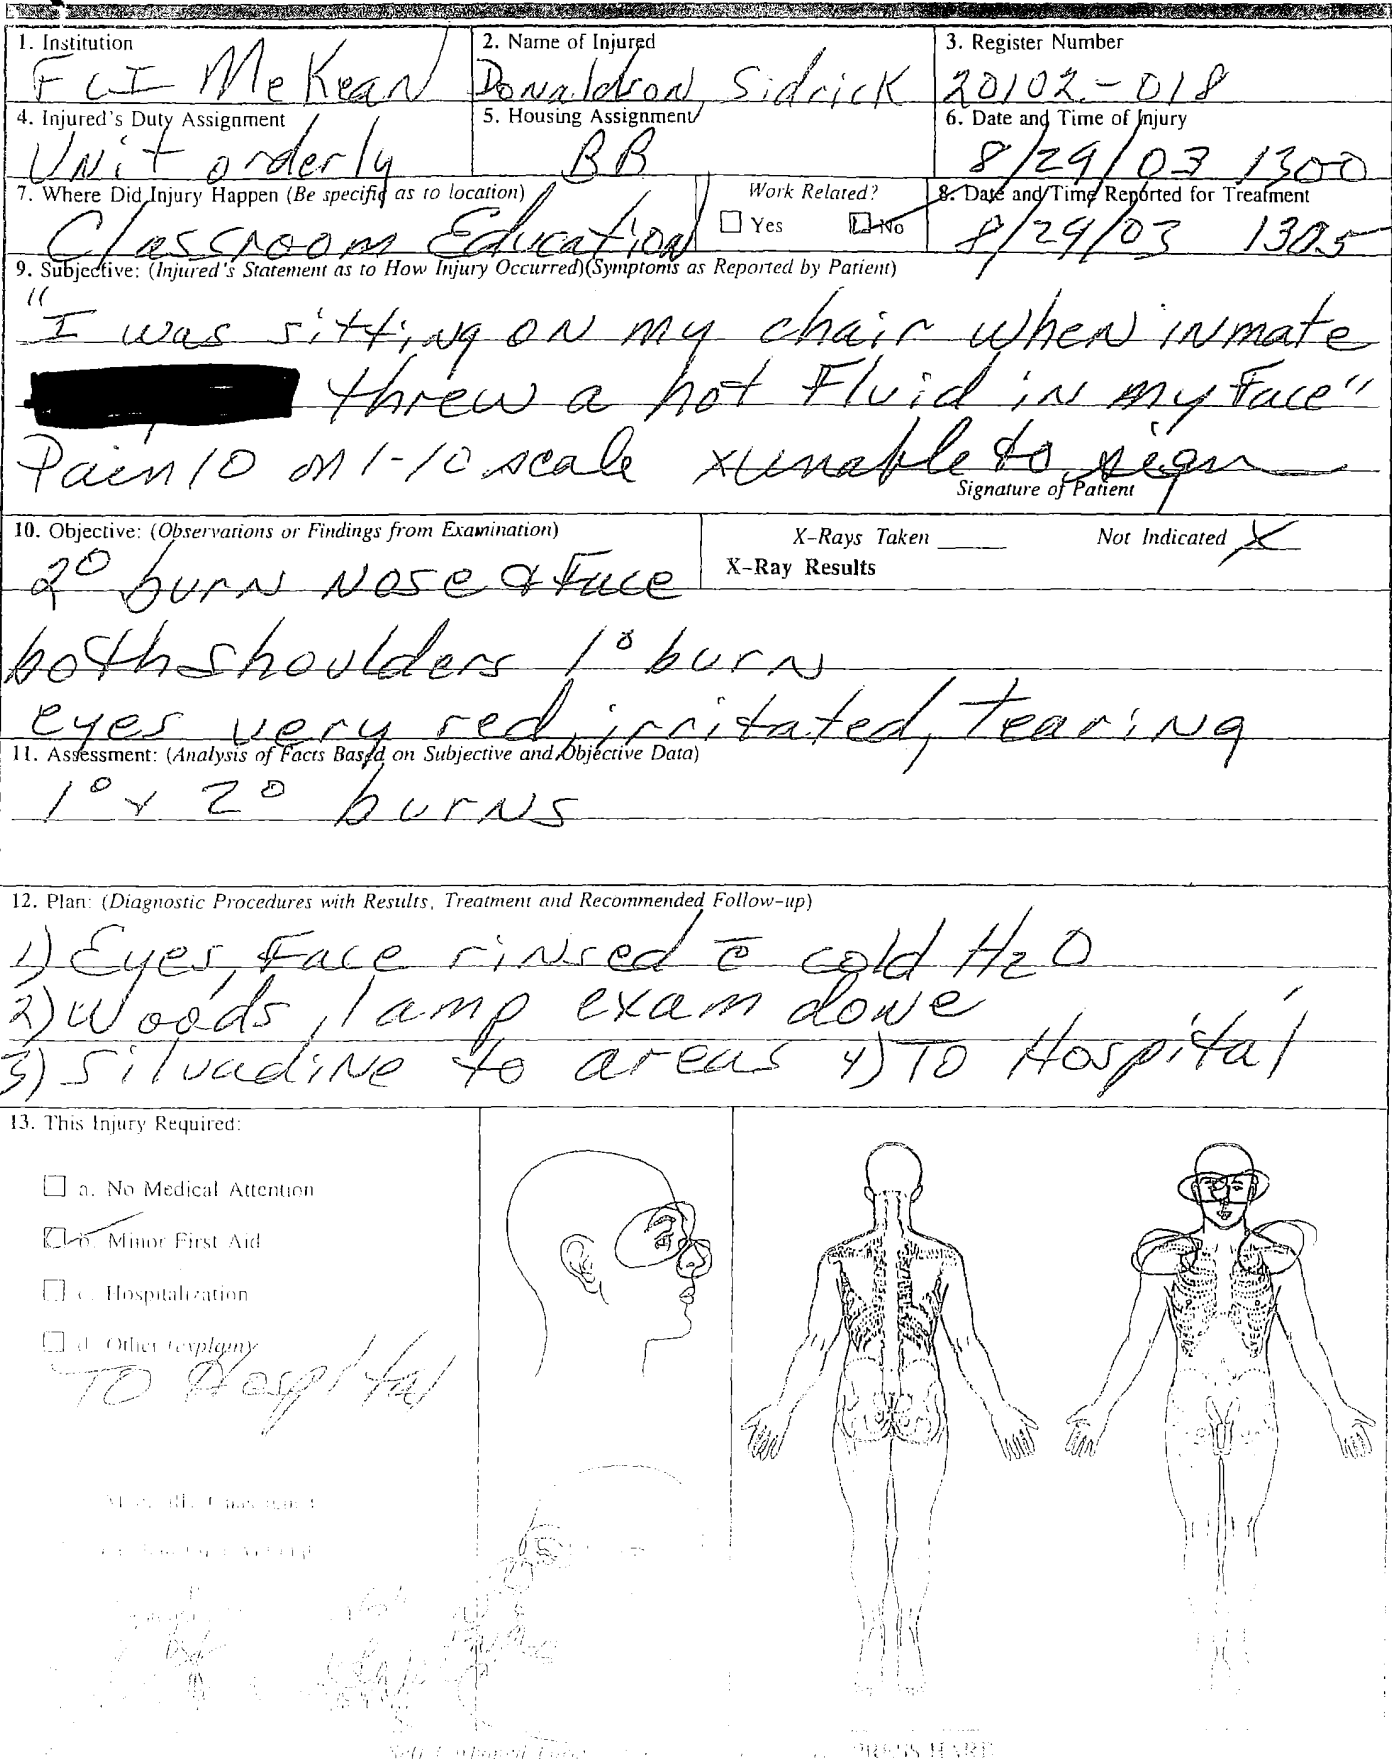 1. Institution
FCI McKean
2. Name of Injured
Donaldson, Sidrick
3. Register Number
20102-018
4. Injured's Duty Assignment
Unit orderly
5. Housing Assignment
BB
6. Date and Time of Injury
8/29/03 1300
7. Where Did Injury Happen (Be specific as to location)
Classroom Education
Work Related?
Yes
No
8. Date and Time Reported for Treatment
8/29/03 1305
9. Subjective: (Injured's Statement as to How Injury Occurred)(Symptoms as Reported by Patient)
"I was sitting on my chair when inmate
threw a hot Fluid in my Face"
Pain 10 on 1-10 scale x unable to sign
Signature of Patient
10. Objective: (Observations or Findings from Examination)
X-Rays Taken
Not Indicated X
X-Ray Results
2° burn Nose & Face
both shoulders 1° burn
eyes very red, irritated, tearing
11. Assessment: (Analysis of Facts Based on Subjective and Objective Data)
1° & 2° burns
12. Plan: (Diagnostic Procedures with Results, Treatment and Recommended Follow-up)
1) Eyes, Face rinsed c̄ cold H2O
2) Woods lamp exam done
3) Silvadine to areas 4) To Hospital
13. This Injury Required:
a. No Medical Attention
b. Minor First Aid
c. Hospitalization
d. Other (explain)
To Hospital